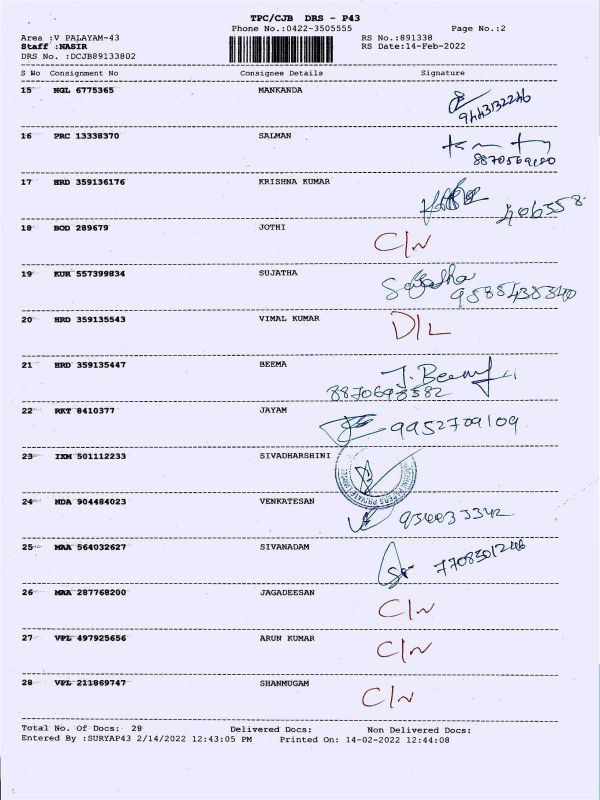 TPC/CJB DRS - P43
Phone No.:0422-3505555 Page No.:2
Area :V PALAYAM-43 RS No.:891338
Staff :NASIR RS Date:14-Feb-2022
DRS No. :DCJB89133802
S No Consignment No Consignee Details Signature
15 NGL 6775365 MANKANDA
9443132246
16 PRC 13338370 SALMAN
17 HRD 359136176 KRISHNA KUMAR
406558
18 BOD 289679 JOTHI C/N
19 KUR 557399834 SUJATHA Sujatha
9585438340
20 HRD 359135543 VIMAL KUMAR D/L
21 HRD 359135447 BEEMA J. Beema
22 RKT 8410377 JAYAM 9952709109
23 IXM 501112233 SIVADHARSHINI
24 NDA 904484023 VENKATESAN
25 MAA 564032627 SIVANADAM
26 MAA 287768200 JAGADEESAN C/N
27 VPL 497925656 ARUN KUMAR C/N
28 VPL 211869747 SHANMUGAM C/N
Total No. Of Docs: 28 Delivered Docs: Non Delivered Docs:
Entered By :SURYAP43 2/14/2022 12:43:05 PM Printed On: 14-02-2022 12:44:08